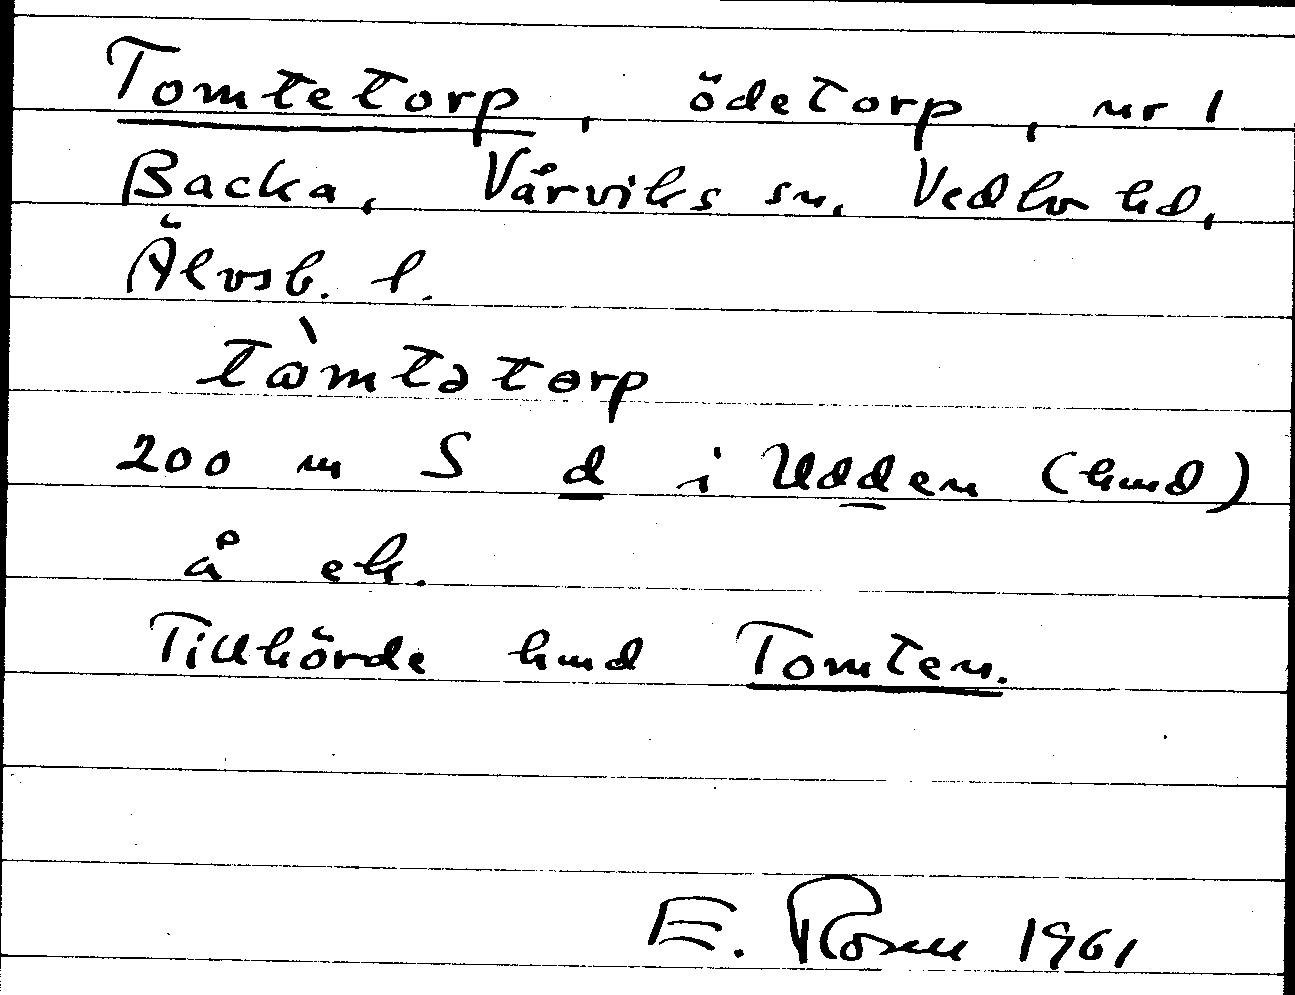 Tomtetorp, ödetorp, nr 1
Backa, Vårviks sn. Vedbo hd,
Älvsb. l.
tòmtətorp
200 m S d i Udden (hmd)
å ek.
Tillhörde hmd Tomten.
E. Rosell 1961